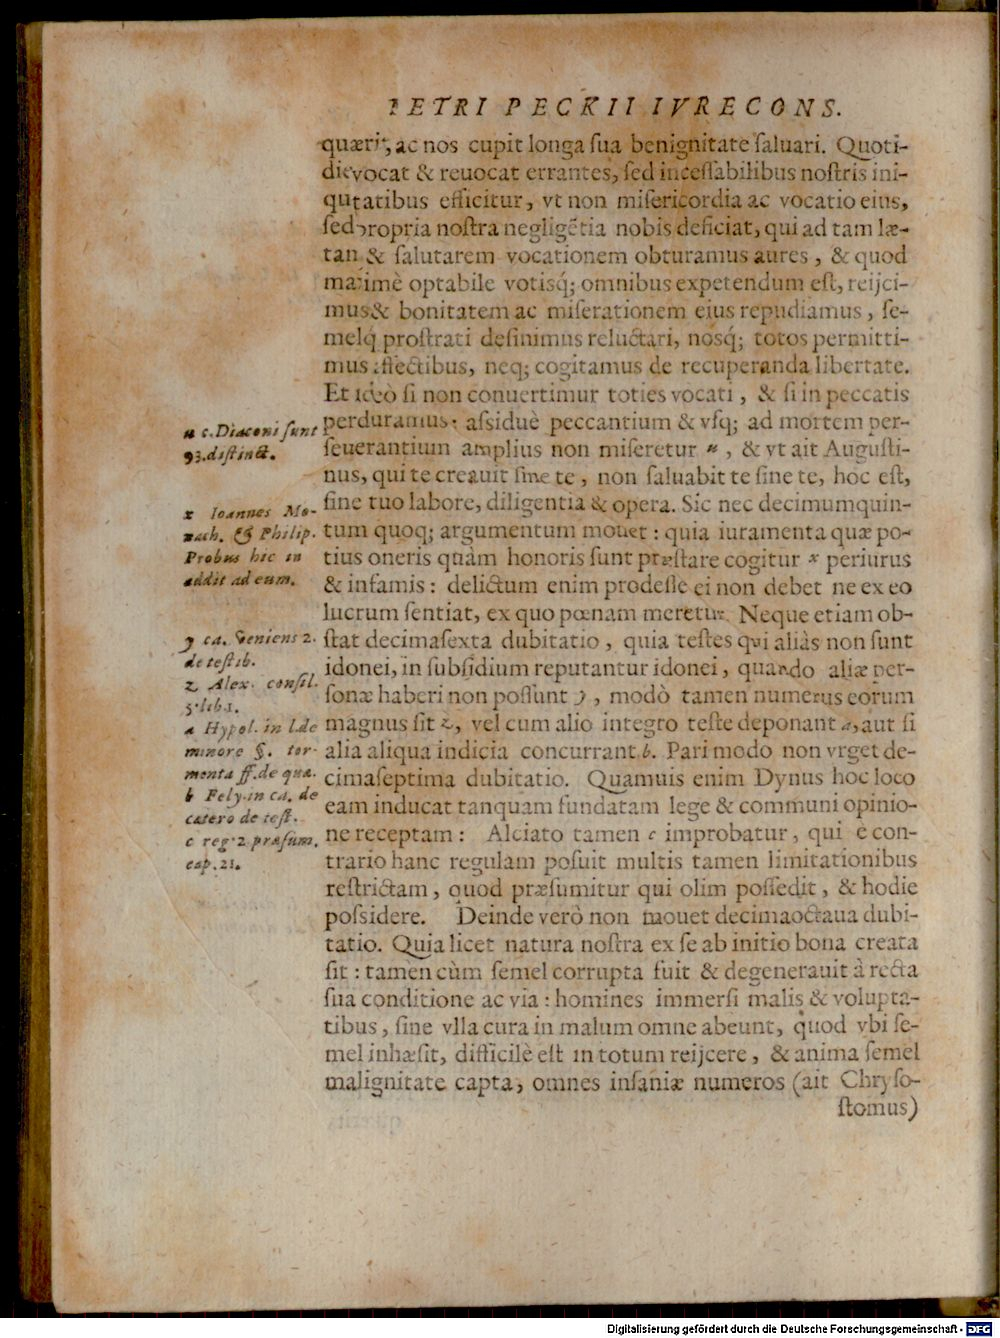 PETRI PECKII IVRECONS.
quærit, ac nos cupit longa ſua benignitate ſaluari. Quoti-
die vocat & reuocat errantes, ſed inceſſabilibus noſtris ini-
qutatibus efficitur, vt non miſericordia ac vocatio eius,
ſed propria noſtra negligẽtia nobis deficiat, qui ad tam læ-
tam & ſalutarem vocationem obturamus aures, & quod
maximè optabile votisq́; omnibus expetendum eſt, reijci-
mus & bonitatem ac miſerationem eius repudiamus, ſe-
melq́ proſtrati deſinimus reluctari, nosq́; totos permitti-
mus affectibus, neq; cogitamus de recuperanda libertate.
Et ideò ſi non conuertimur toties vocati, & ſi in peccatis
perduramus: aſsiduè peccantium & vſq; ad mortem per-
ſeuerantium amplius non miſeretur u, & vt ait Auguſti-
nus, qui te creauit ſine te, non ſaluabit te ſine te, hoc eſt,
ſine tuo labore, diligentia & opera. Sic nec decimumquin-
tum quoq; argumentum mouet: quia iuramenta quæ po-
tius oneris quàm honoris ſunt præſtare cogitur x periurus
& infamis: delictum enim prodeſſe ei non debet ne ex eo
lucrum ſentiat, ex quo pœnam meretur. Neque etiam ob-
ſtat decimaſexta dubitatio, quia teſtes qui aliàs non ſunt
idonei, in ſubſidium reputantur idonei, quando aliæ per-
ſonæ haberi non poſſunt y, modò tamen numerus eorum
magnus ſit z, vel cum alio integro teſte deponant a, aut ſi
alia aliqua indicia concurrant b. Pari modo non vrget de-
cimaſeptima dubitatio. Quamuis enim Dynus hoc loco
eam inducat tanquam fundatam lege & communi opinio-
ne receptam: Alciato tamen c improbatur, qui è con-
trario hanc regulam poſuit multis tamen limitationibus
reſtrictam, quod præſumitur qui olim poſſedit, & hodie
poſsidere. Deinde verò non mouet decimaoctaua dubi-
tatio. Quia licet natura noſtra ex ſe ab initio bona creata
ſit: tamen cùm ſemel corrupta fuit & degenerauit à recta
ſua conditione ac via: homines immerſi malis & volupta-
tibus, ſine vlla cura in malum omne abeunt, quod vbi ſe-
mel inhæſit, difficilè eſt in totum reijcere, & anima ſemel
malignitate capta, omnes inſaniæ numeros (ait Chryſo-
ſtomus)
u c. Diaconi ſunt
93. diſtinct.
x Ioannes Mo-
nach. & Philip.
Probus hic in
addit ad eum.
y ca. Veniens 2.
de teſtib.
z Alex. conſil.
5. lib 1.
a Hypol. in l. de
minore §. tor-
menta ff. de quæ.
b Fely. in ca. de
cætero de teſt.
c reg. 2 præſum.
cap. 21.
Digitalisierung gefördert durch die Deutsche Forschungsgemeinschaft - DFG